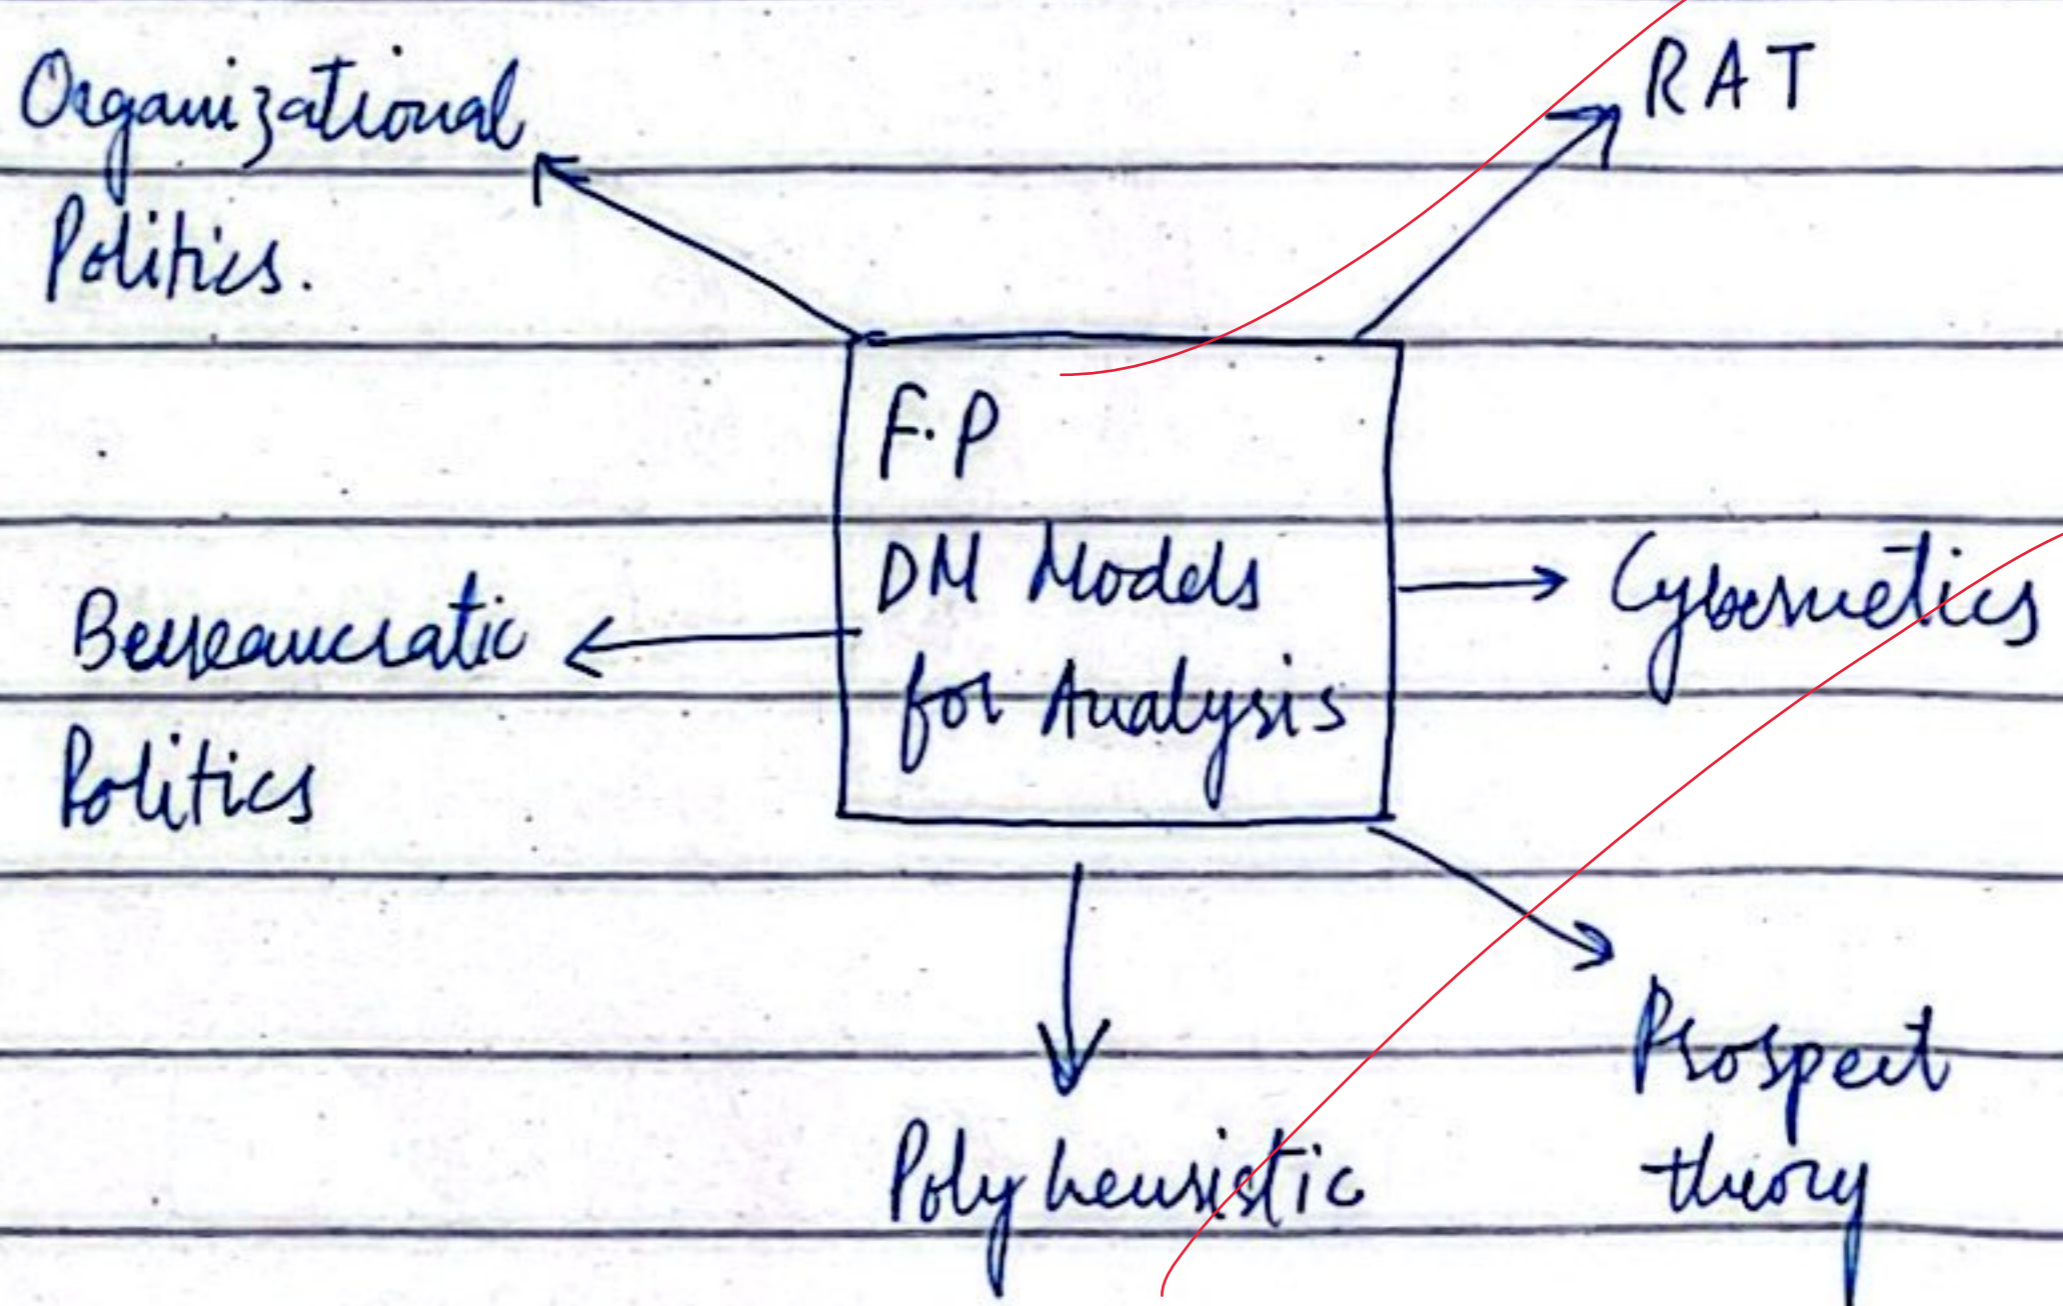 Organizational
Politics.
RAT
F.P
DM Models
for Analysis
Beureaucratic
Politics
Cybernetics
Polyheuristic
Prospect
theory